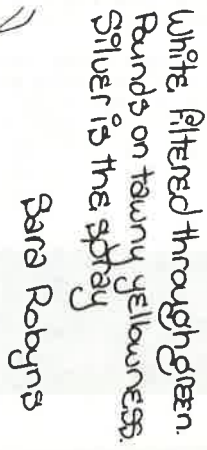 White filtered through green.
Pounds on tawny yellowness.
Silver is the spray
Sara Robyns